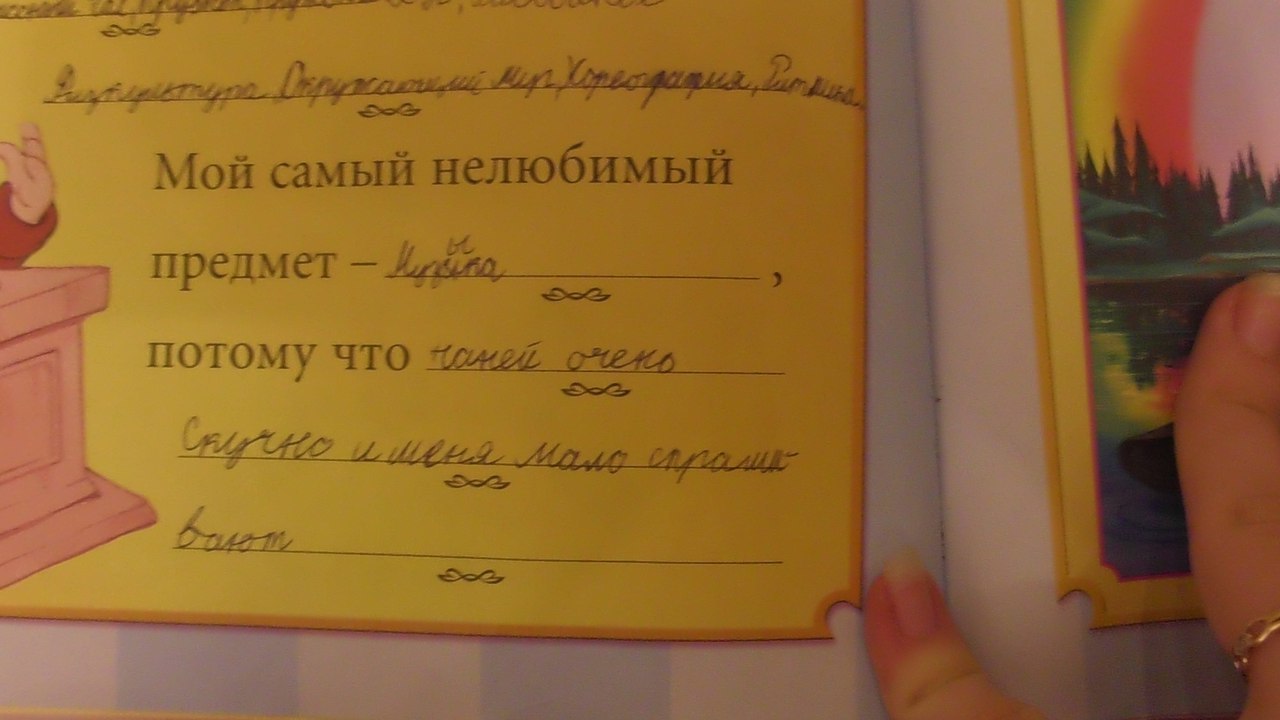 Физкультура Окружающий мир, Хореография, Ритмика.
Мой самый нелюбимый
предмет – Музыка ,
потому что наней очень
Скучно и меня мало спраши-
вают